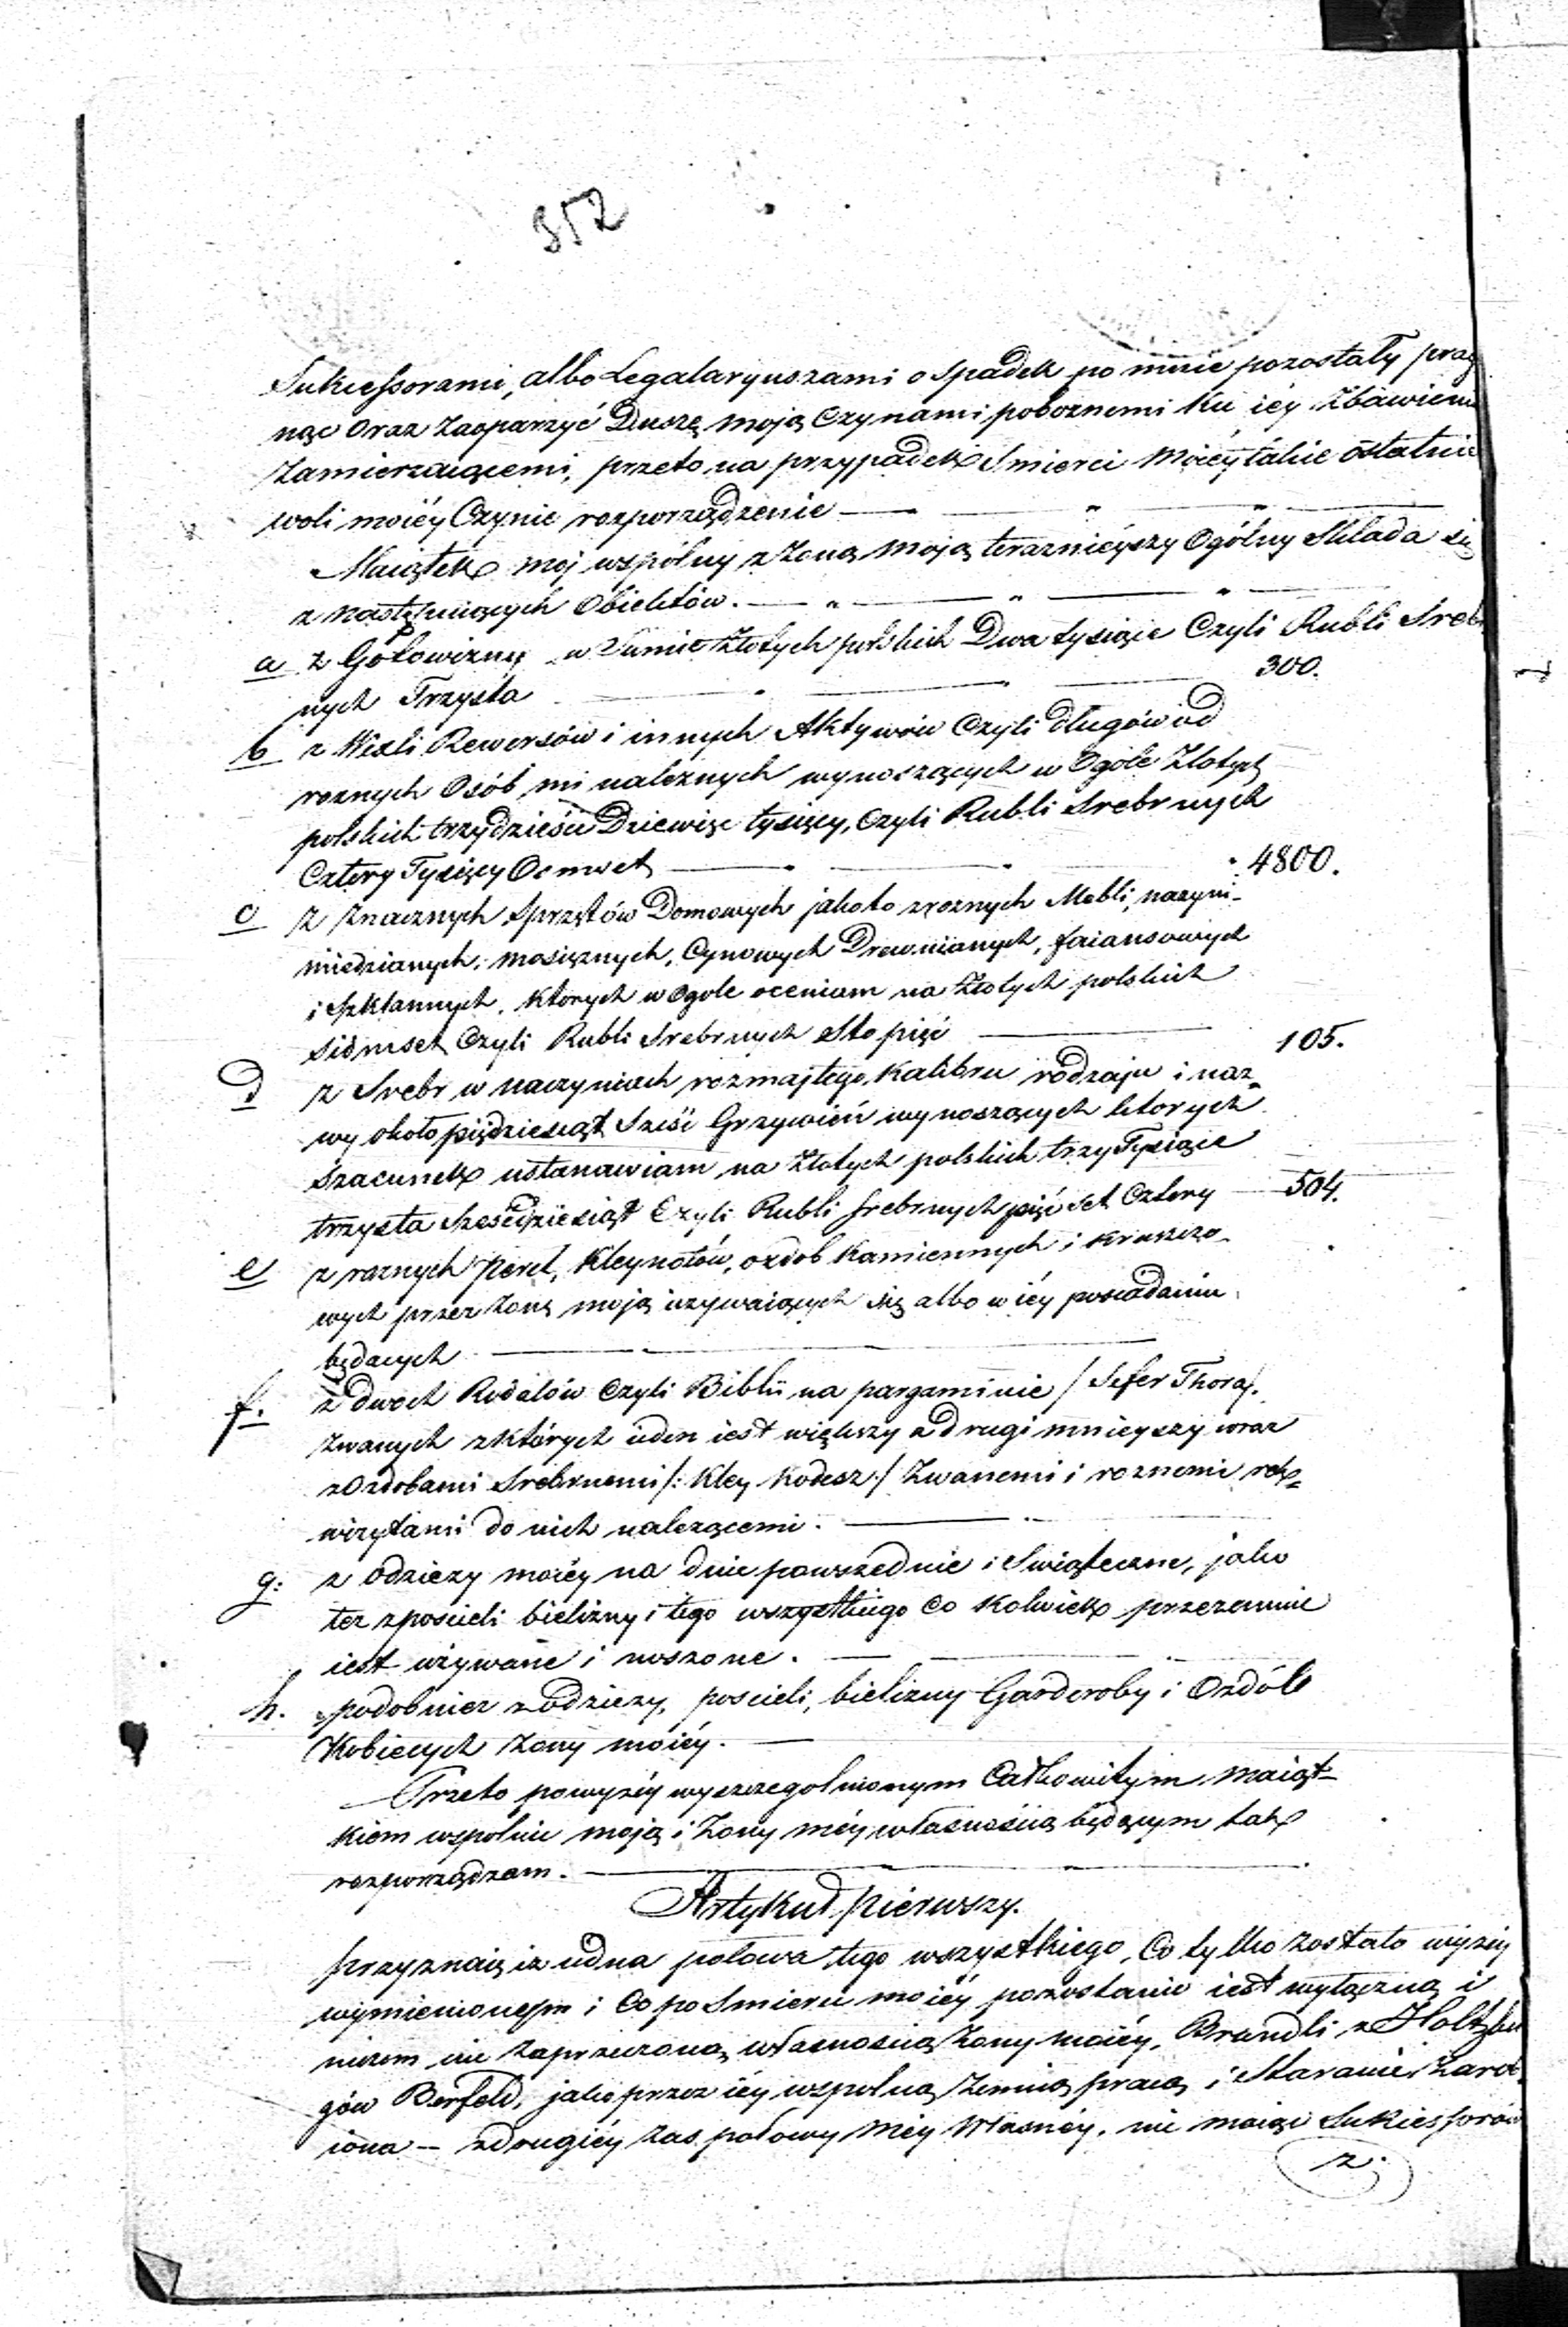 352
Sukcessorami, albo Legataryuszami o spadek po mnie pozostały prag
nąc oraz zaoparzyć Duszę moją Czynami pobożnemi ku iéy Zbawieniu
zamierzaiącemi, przeto na przypadek Smierci moiéy takie ostatnie
woli moiéy Czynie rozporządzenie —
Maiątek moj wspólny z Żoną moją teraznieyszy Ogólny Składa się
z następuiących Obiektów. —
a z Gotowizny w Sumie Złotych polskich Dwa tysiące Czyli Rubli Sreb
nych Trzysta — 300.
b z Wexli Rewersów i innych Aktywów Czyli długów od
roznych Osób mi należnych wynoszących w Ogóle Złotych
polskich trzydzieści Dziewięć tysięcy, Czyli Rubli Srebrnych
Cztery Tysięcy Osmset — 4800.
c z znacznych Sprzętów Domowych jakoto z roznych Mebli, naczyń
miedzianych, mosięznych, Cynowych Drewnianych, faiansowych
i Szklannych, ktorych w Ogole oceniam na Złotych polskich
siedmset Czyli Rubli Srebrnych Sto pięć — 105.
d z Srebr w naczyniach rozmajtego, Kalibru rodzaju i naz-
wy około pięćdziesiąt Sześć Grzywień wynoszących ktorych
szacunek ustanawiam na Złotych polskich trzy Tysiące
trzysta Szesćdziesiąt Czyli Rubli srebrnych pięćset Cztery — 504.
e z roznych Pereł, Kleynotów, ozdob Kamiennych i kruszco-
wych przez Żonę moją uzywaiących się albo w iéy posiadaniu
będacych —
f. z dwoch Rodałów Czyli Biblii na pargaminie / Sefer Thora/.
zwanych z których ieden iest większy a drugi mnieyszy wraz
z Ozdobami Srebrnemi /: Kley Kodesz :/ Zwanemi i roznemi rek-
wizytami do nich należącemi. —
g: z Odziezy moiéy na dnie powszednie i Swiąteczne, jako
tez z poscieli bielizny i tego wszystkiego Co kolwiek przezemnie
iest używane i noszone. —
h. podobniez z odziezy, poscieli, bielizny Garderoby i Ozdób
Kobiecych Żony moiéy. —
Przeto powyzéy wyszczegolnionym Całkowitym maiąt-
kiem wspolnie moją i Żony méy własnościa będącym tak
rozporządzam. —
Artykuł Pierwszy.
przyznaię iz iedna połowa tego wszystkiego, Co tylko zostało wyzéy
wymienionem i Co po Smierci moiéy pozostanie iest wyłączną i
niczem nie zaprzeczoną własnoscią Żony moiéy, Brandli z Holtzbe
gów Berfeld, jako przez iéy wspolną zemną pracą i Staranie Zarob
iona — z drugiéy zas połowy méy Własnéy, nie maiąc Sukcessorów
z.